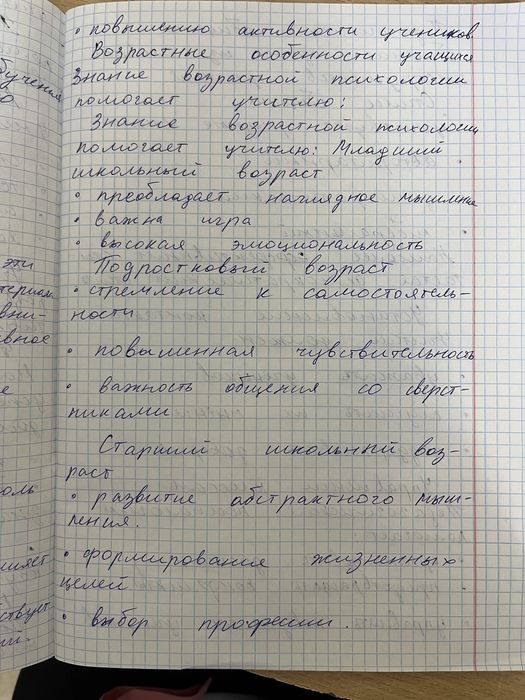 • повышению активности учеников
Возрастные особенности учащихся
Знание возрастной психологии
помогает учителю:
Знание возрастной психологии
помогает учителю: Младший
школьный возраст
• преобладает наглядное мышление
• важна игра
• высокая эмоциональность
Подростковый возраст
• стремление к самостоятель-
ности
• повышенная чувствительность
• важность общения со сверст-
никами
Старший школьный воз-
раст
• развитие абстрактного мыш-
ления.
• формирование жизненных
целей
• выбор профессии.